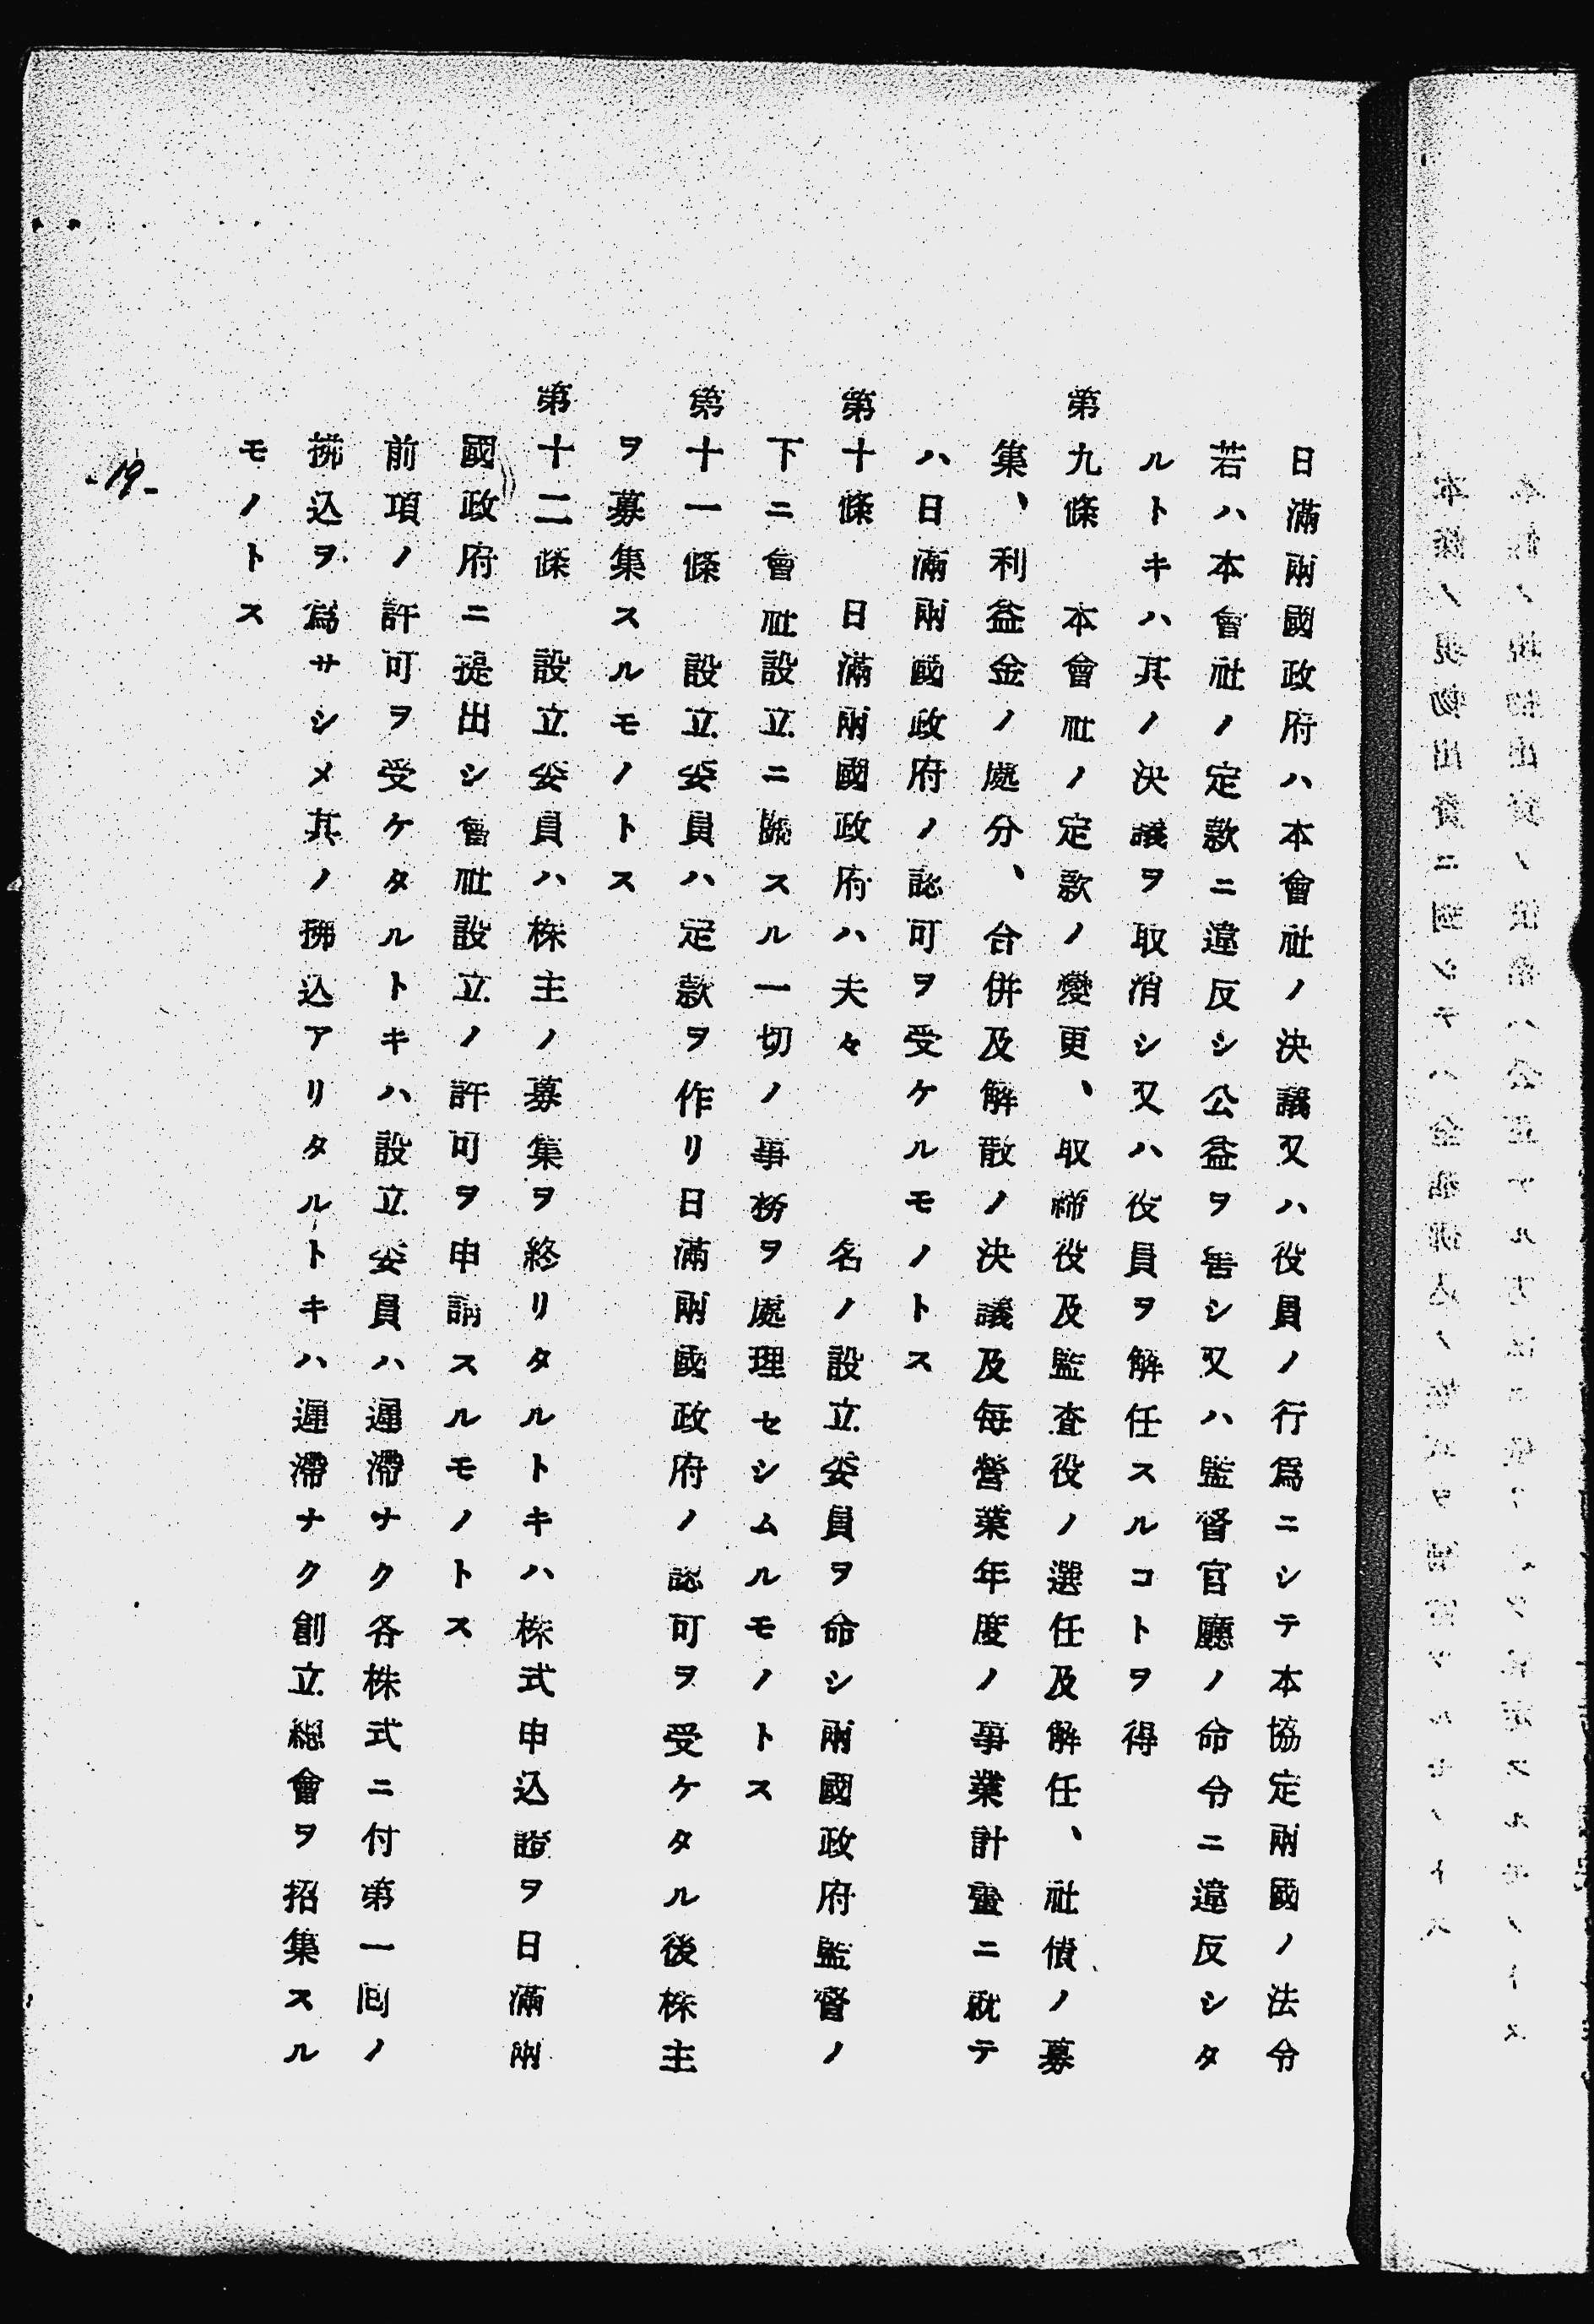 日滿兩國政府ハ本會社ノ決議又ハ役員ノ行爲ニシテ本協定兩國ノ法令
若ハ本會社ノ定款ニ違反シ公益ヲ害シ又ハ監督官廳ノ命令ニ違反シタ
ルトキハ其ノ決議ヲ取消シ又ハ役員ヲ解任スルコトヲ得
第九條　本會社ノ定款ノ變更、取締役及監査役ノ選任及解任、社債ノ募
集、利益金ノ處分、合併及解散ノ決議及每營業年度ノ事業計畫ニ就テ
ハ日滿兩國政府ノ認可ヲ受ケルモノトス
第十條　日滿兩國政府ハ夫々　　名ノ設立委員ヲ命シ兩國政府監督ノ
下ニ會社設立ニ關スル一切ノ事務ヲ處理セシムルモノトス
第十一條　設立委員ハ定款ヲ作リ日滿兩國政府ノ認可ヲ受ケタル後株主
ヲ募集スルモノトス
第十二條　設立委員ハ株主ノ募集ヲ終リタルトキハ株式申込證ヲ日滿兩
國政府ニ提出シ會社設立ノ許可ヲ申請スルモノトス
前項ノ許可ヲ受ケタルトキハ設立委員ハ遲滯ナク各株式ニ付第一囘ノ
拂込ヲ爲サシメ其ノ拂込アリタルトキハ遲滯ナク創立總會ヲ招集スル
モノトス
-19-